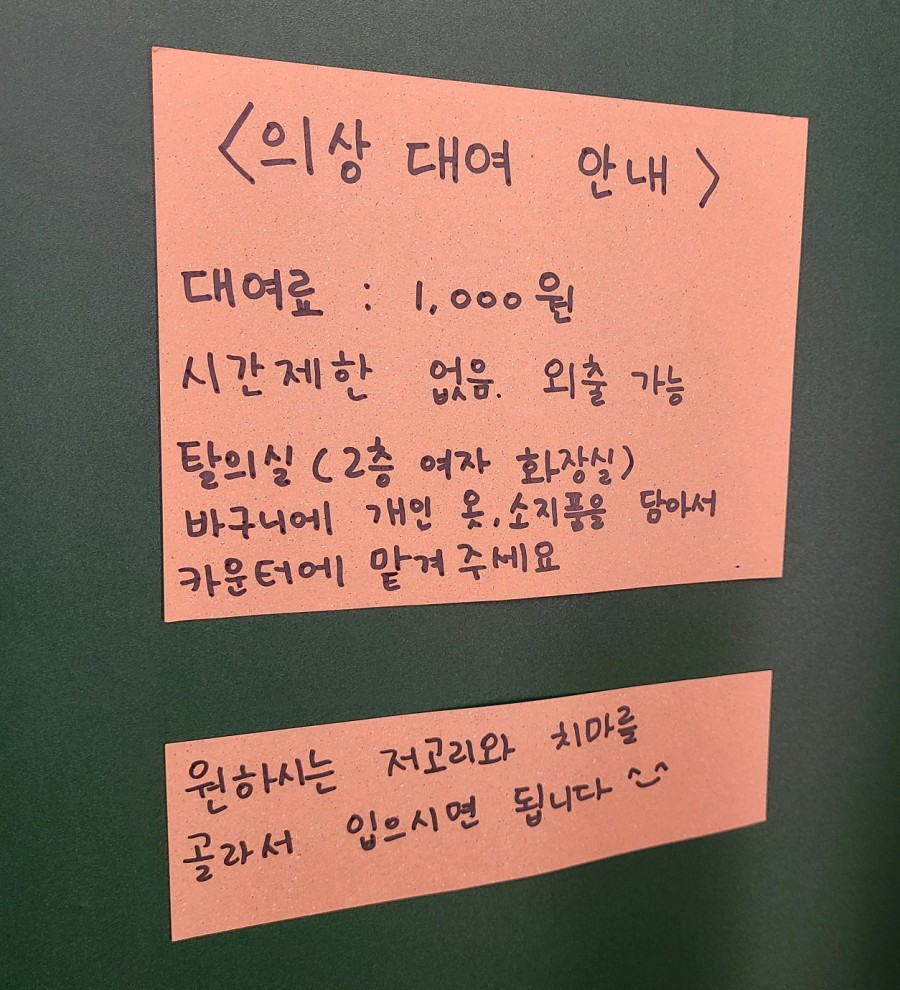 <의상 대여 안내>
대여료 : 1,000원
시간제한 없음. 외출 가능
탈의실 (2층 여자 화장실)
바구니에 개인 옷, 소지품을 담아서
카운터에 맡겨주세요
원하시는 저고리와 치마를
골라서 입으시면 됩니다 ^^